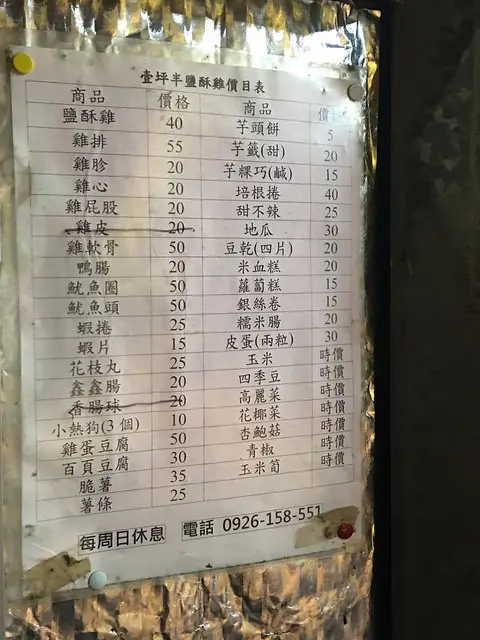 壹坪半鹽酥雞價目表
商品 價格 商品 價格
鹽酥雞 40 芋頭餅 5
雞排 55 芋籤(甜) 20
雞胗 20 芋粿巧(鹹) 15
雞心 20 培根捲 40
雞屁股 20 甜不辣 25
雞皮 20 地瓜 30
雞軟骨 50 豆乾(四片) 20
鴨腸 20 米血糕 20
魷魚圈 50 蘿蔔糕 15
魷魚頭 50 銀絲卷 15
蝦捲 25 糯米腸 20
蝦片 15 皮蛋(兩粒) 30
花枝丸 25 玉米 時價
鑫鑫腸 20 四季豆 時價
香腸球 20 高麗菜 時價
小熱狗(3個) 10 花椰菜 時價
雞蛋豆腐 50 杏鮑菇 時價
百頁豆腐 30 青椒 時價
脆薯 35 玉米筍 時價
薯條 25
每周日休息 電話 0926-158-551